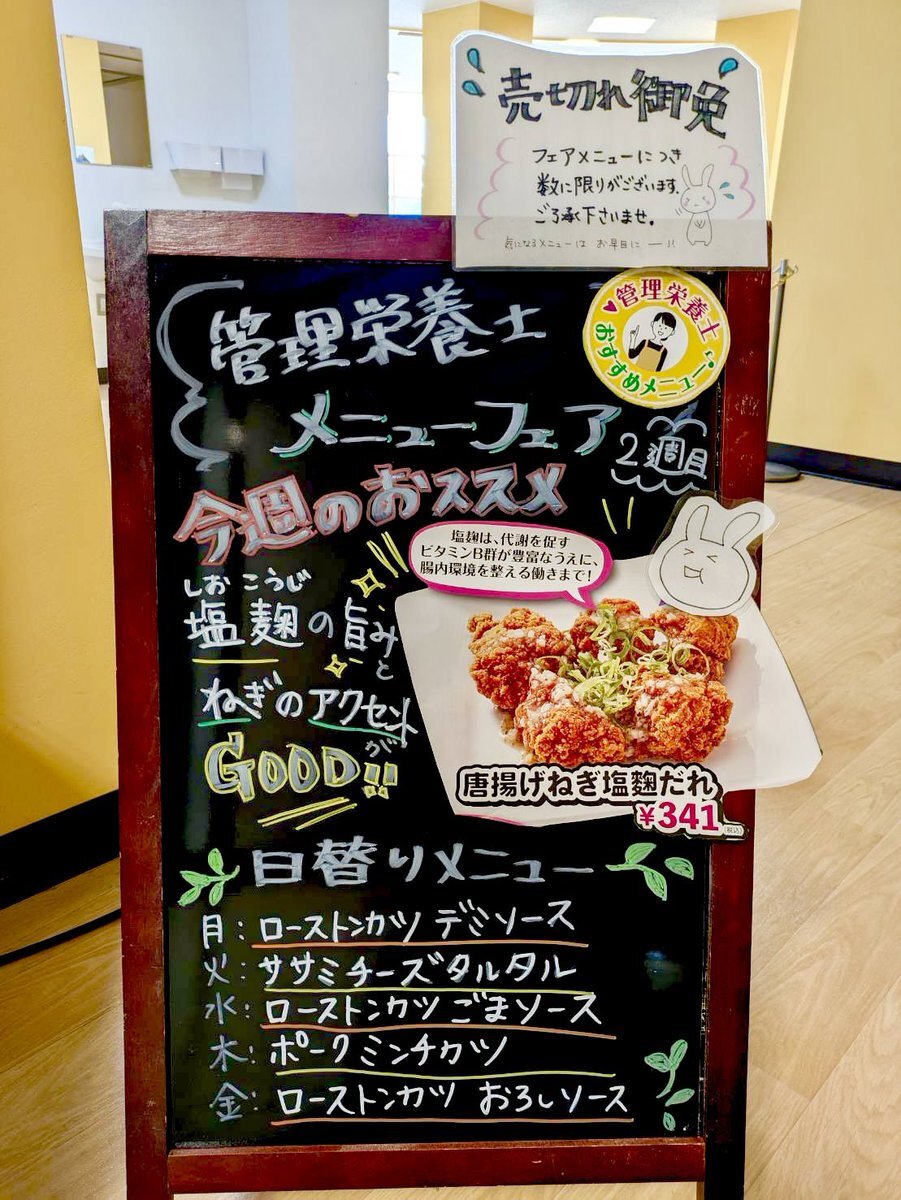 売切れ御免
フェアメニューにつき
数に限りがございます。
ご了承下さいませ。
気になるメニューは お早目に ー!!
管理栄養士
おすすめメニュー
管理栄養士
メニューフェア
2週目
今週のおススメ
塩麹は、代謝を促す
ビタミンB群が豊富なうえに、
腸内環境を整える働きまで!
しおこうじ
塩麹の旨みと
ねぎのアクセントが
GOOD!!
唐揚げねぎ塩麹だれ
¥341(税込)
日替りメニュー
月:ローストンカツ デミソース
火:ササミチーズタルタル
水:ローストンカツ ごまソース
木:ポークミンチカツ
金:ローストンカツ おろしソース